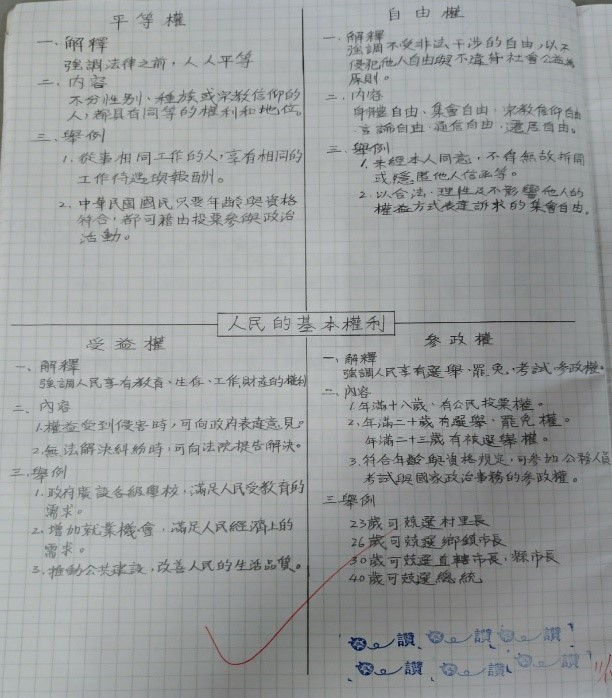 平等權
一、解釋
強調法律之前，人人平等
二、內容
不分性別、種族或宗教信仰的
人，都具有同等的權利和地位。
三、舉例
1.從事相同工作的人，享有相同的
工作待遇與報酬。
2.中華民國國民只要年齡與資格
符合，都可藉由投票參與政治
活動。
自由權
一、解釋
強調不受非法干涉的自由，以不
侵犯他人自由與不違背社會公益為
原則。
二、內容
身體自由、集會自由、宗教信仰自由
言論自由、通信自由、遷居自由。
三、舉例
1.未經本人同意，不得無故拆閱
或隱匿他人信函等。
2.以合法、理性及不影響他人的
權益方式表達訴求的集會自由。
人民的基本權利
受益權
一、解釋
強調人民享有教育、生存、工作、財產的權利
二、內容
1.權益受到侵害時，可向政府表達意見。
2.無法解決糾紛時，可向法院提告解決。
三、舉例
1.政府廣設各級學校，滿足人民受教育的
需求。
2.增加就業機會，滿足人民經濟上的
需求。
3.推動公共建設，改善人民的生活品質。
參政權
一、解釋
強調人民享有選舉、罷免、考試、參政權。
二、內容
1.年滿十八歲，有公民投票權。
2.年滿二十歲有選舉、罷免權。
年滿二十三歲有被選舉權。
3.符合年齡與資格規定，可參加公務人員
考試與國家政治事務的參政權。
三、舉例
23歲可競選村里長
26歲可競選鄉鎮市長
30歲可競選直轄市長、縣市長
40歲可競選總統
讚 讚 讚
讚 讚 讚